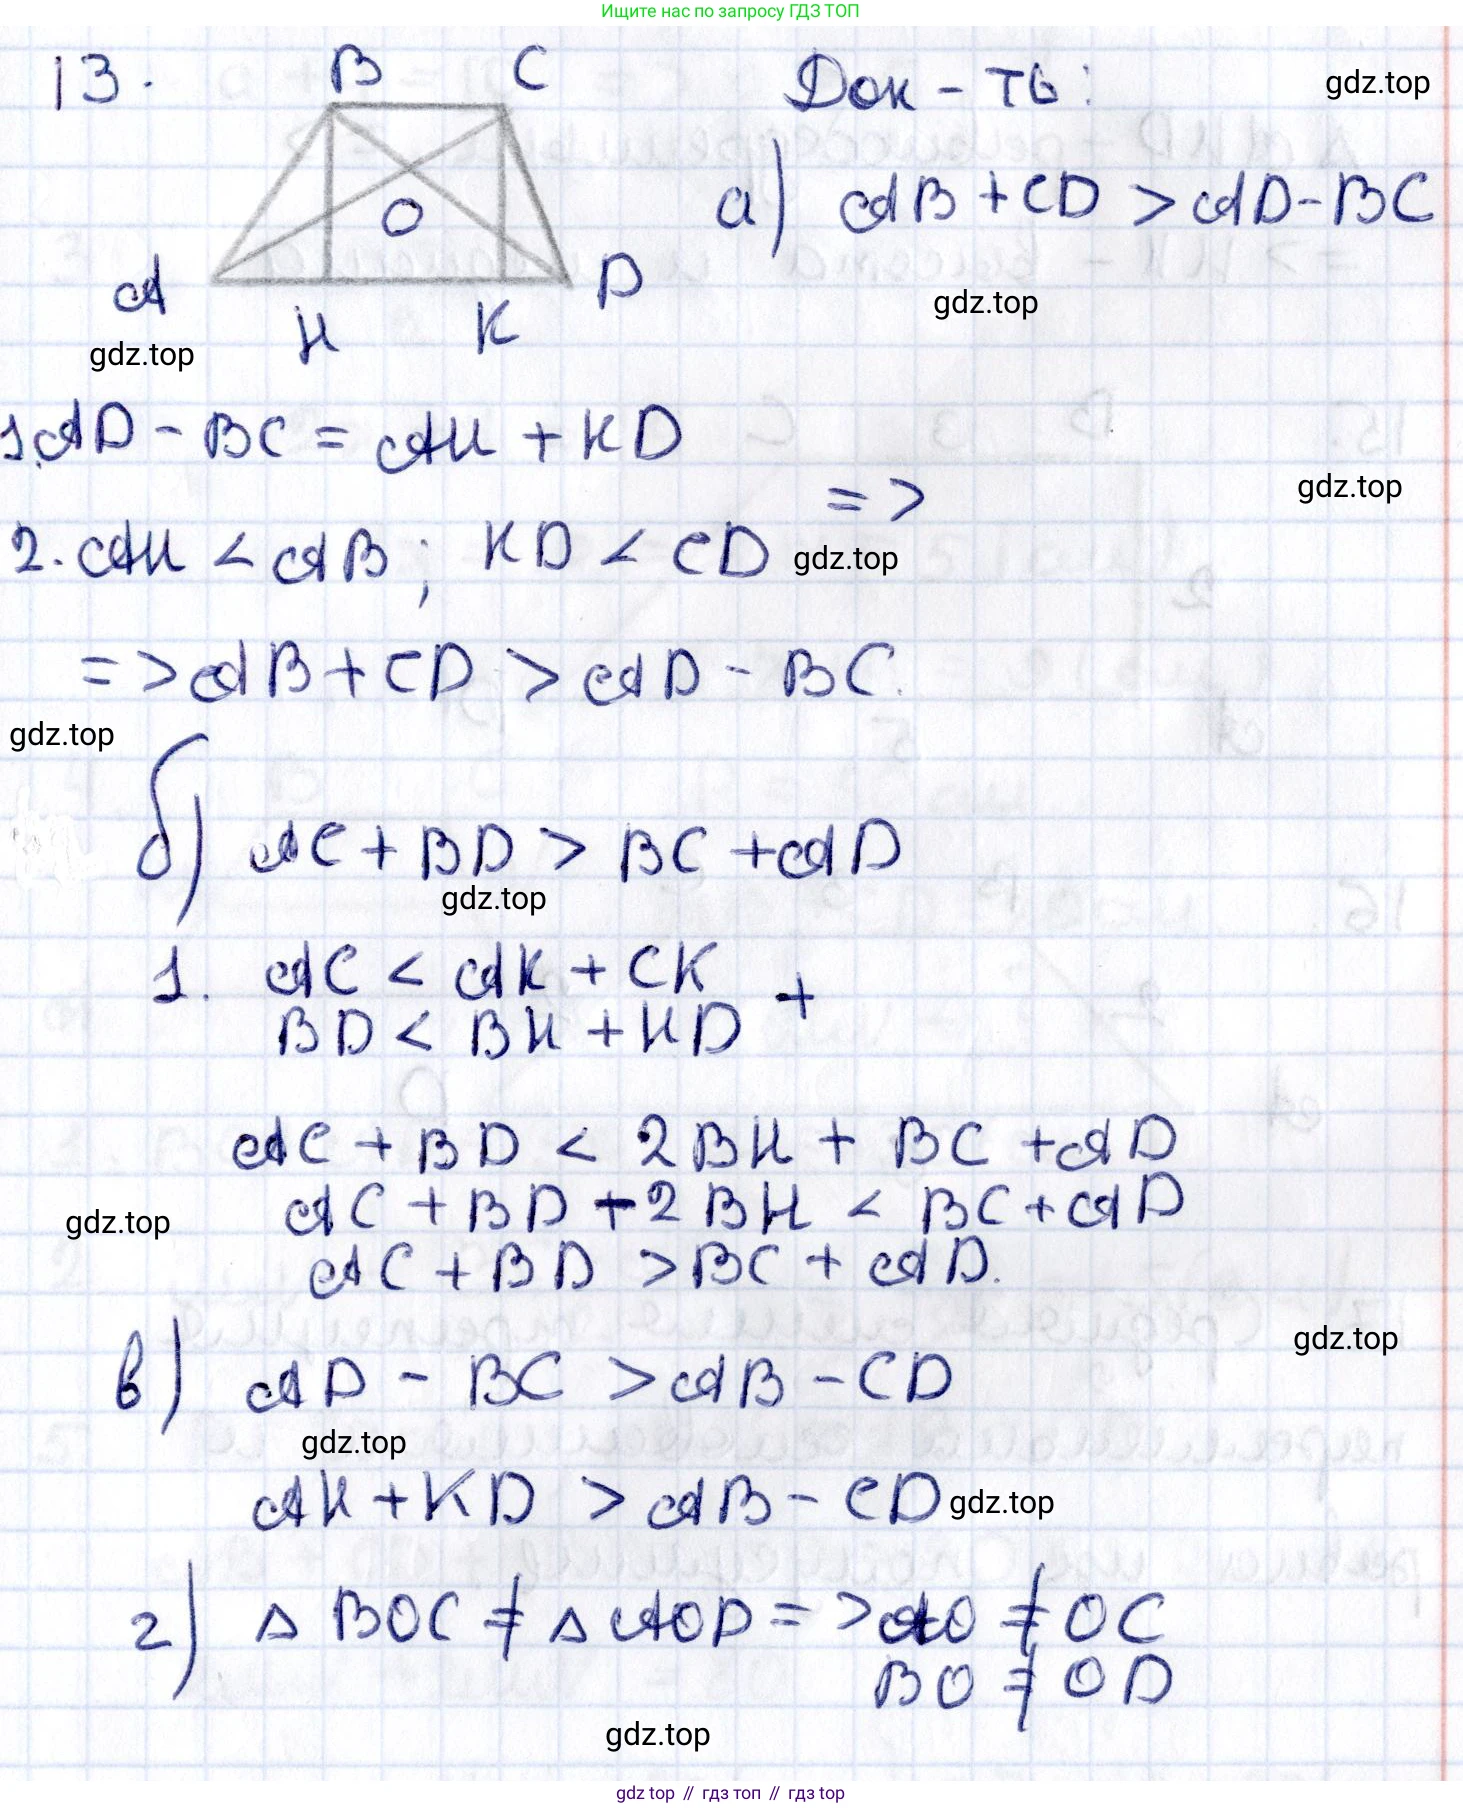 Ищите нас по запросу ГДЗ ТОП
13. B C Док-ть: gdz.top
O а) AB + CD > AD - BC
A H K D gdz.top
gdz.top
1. AD - BC = AH + KD
=> gdz.top
2. AH < AB; KD < CD gdz.top
=> AB + CD > AD - BC.
gdz.top
б) AC + BD > BC + AD
gdz.top
1. AC < AK + CK +
BD < BH + HD
AC + BD < 2BH + BC + AD
gdz.top AC + BD - 2BH < BC + AD
AC + BD > BC + AD.
gdz.top
в) AD - BC > AB - CD
gdz.top
AH + KD > AB - CD gdz.top
г) Δ BOC ≠ Δ AOD => AO ≠ OC
BO ≠ OD
gdz.top
gdz top // гдз топ // гдз top